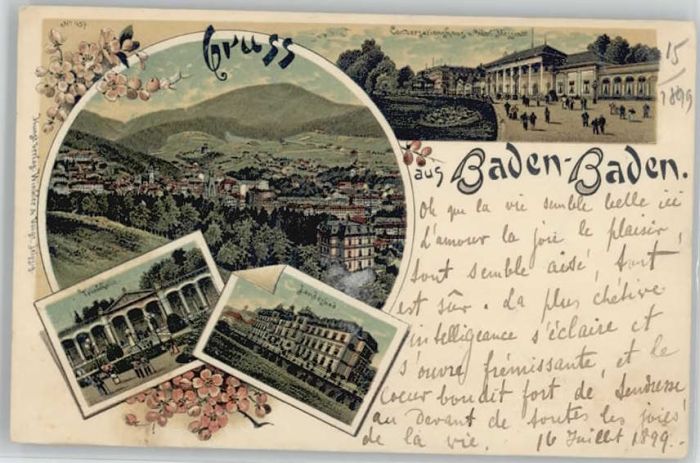 No 457
Gruss
Conversationshaus
15
/1899
aus Baden-Baden.
Trinkhalle
Landesbad
Oh que la vie semble belle ici
l'amour la joie le plaisir,
tout semble aisé, tout
est sûr. La plus chétive
intelligeance s'éclaire et
s'ouvre frémissante, et le
Coeur bondit fort de tendresse
au devant de toutes les joies
de la vie. 16 Juillet 1899.
Kunstverlag